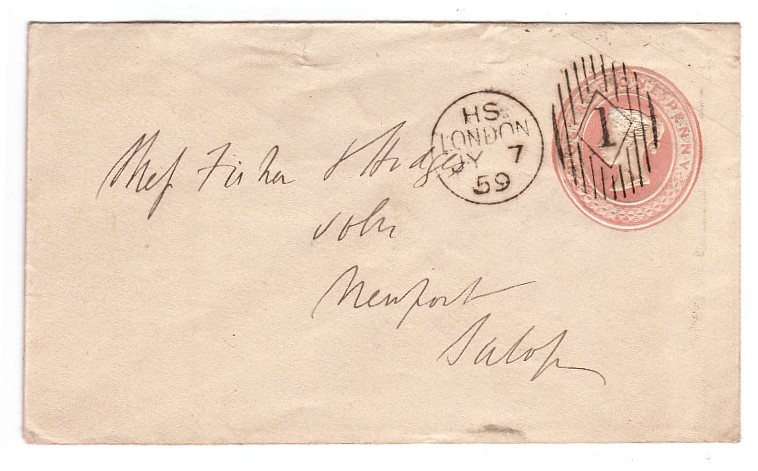 HS
LONDON
JY 7
59
1
ONE PENNY
Mess Fisher & Hodges
Sols
Newport
Salop